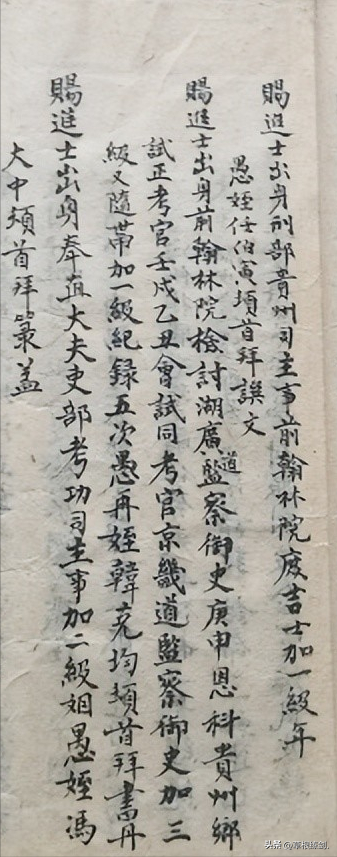 賜進士出身刑部貴州司主事前翰林院庶吉士加一級年
愚姪任伯寅頓首拜譔文
賜進士出身前翰林院檢討湖廣道監察御史庚申恩科貴州鄉
試正考官壬戌乙丑會試同考官京畿道監察御史加三
級又隨帶加一級紀錄五次愚再姪韓克均頓首拜書丹
賜進士出身奉直大夫吏部考功司主事加二級姻愚姪馮
大中頓首拜篆盖
头条 @草根缭剑